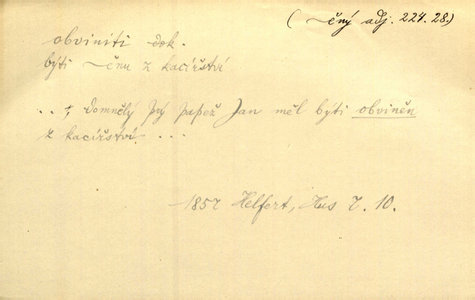 ( ~čný adj. 224.28.)
obviniti dok.
býti ~čnu z kacířství
. . , domnělý prý papež Jan měl býti obviněn
z kacířství. . . .
1857 Helfert, Hus 7. 10.